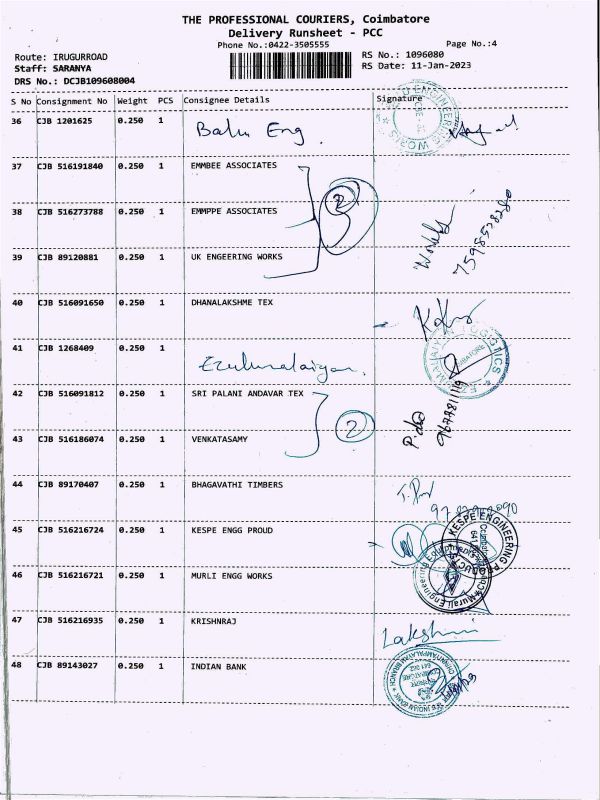 THE PROFESSIONAL COURIERS, Coimbatore
Delivery Runsheet - PCC
Phone No.:0422-3505555
Page No.:4
Route: IRUGURROAD
RS No.: 1096080
Staff: SARANYA
RS Date: 11-Jan-2023
DRS No.: DCJB109608004
S No Consignment No Weight PCS Consignee Details Signature
36 CJB 1201625 0.250 1 Balu Eng.
37 CJB 516191840 0.250 1 EMMBEE ASSOCIATES
38 CJB 516273788 0.250 1 EMMPPE ASSOCIATES
2
39 CJB 89120881 0.250 1 UK ENGEERING WORKS
40 CJB 516091650 0.250 1 DHANALAKSHME TEX
41 CJB 1268409 0.250 1
42 CJB 516091812 0.250 1 SRI PALANI ANDAVAR TEX
2
43 CJB 516186074 0.250 1 VENKATASAMY
44 CJB 89170407 0.250 1 BHAGAVATHI TIMBERS
45 CJB 516216724 0.250 1 KESPE ENGG PROUD
KESPE ENGINEERING
46 CJB 516216721 0.250 1 MURLI ENGG WORKS
47 CJB 516216935 0.250 1 KRISHNRAJ
Lakshmi
48 CJB 89143027 0.250 1 INDIAN BANK